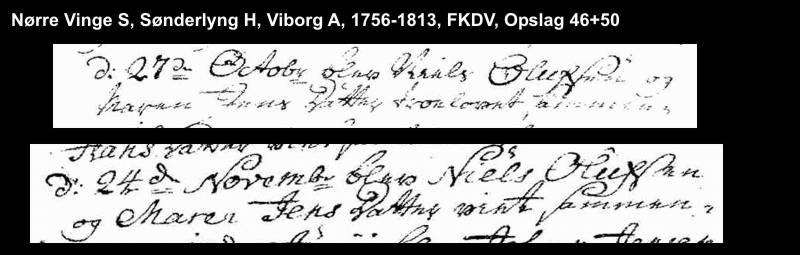 Nørre Vinge S, Sønderlyng H, Viborg A, 1756-1813, FKDV, Opslag 46+50
d: 27de Octobr blev Niels Olufsen og
Maren Jens Datter troelovet sammen.
d: 24de Novembr blev Niels Olufsen
og Maren Jens Datter viet sammen.